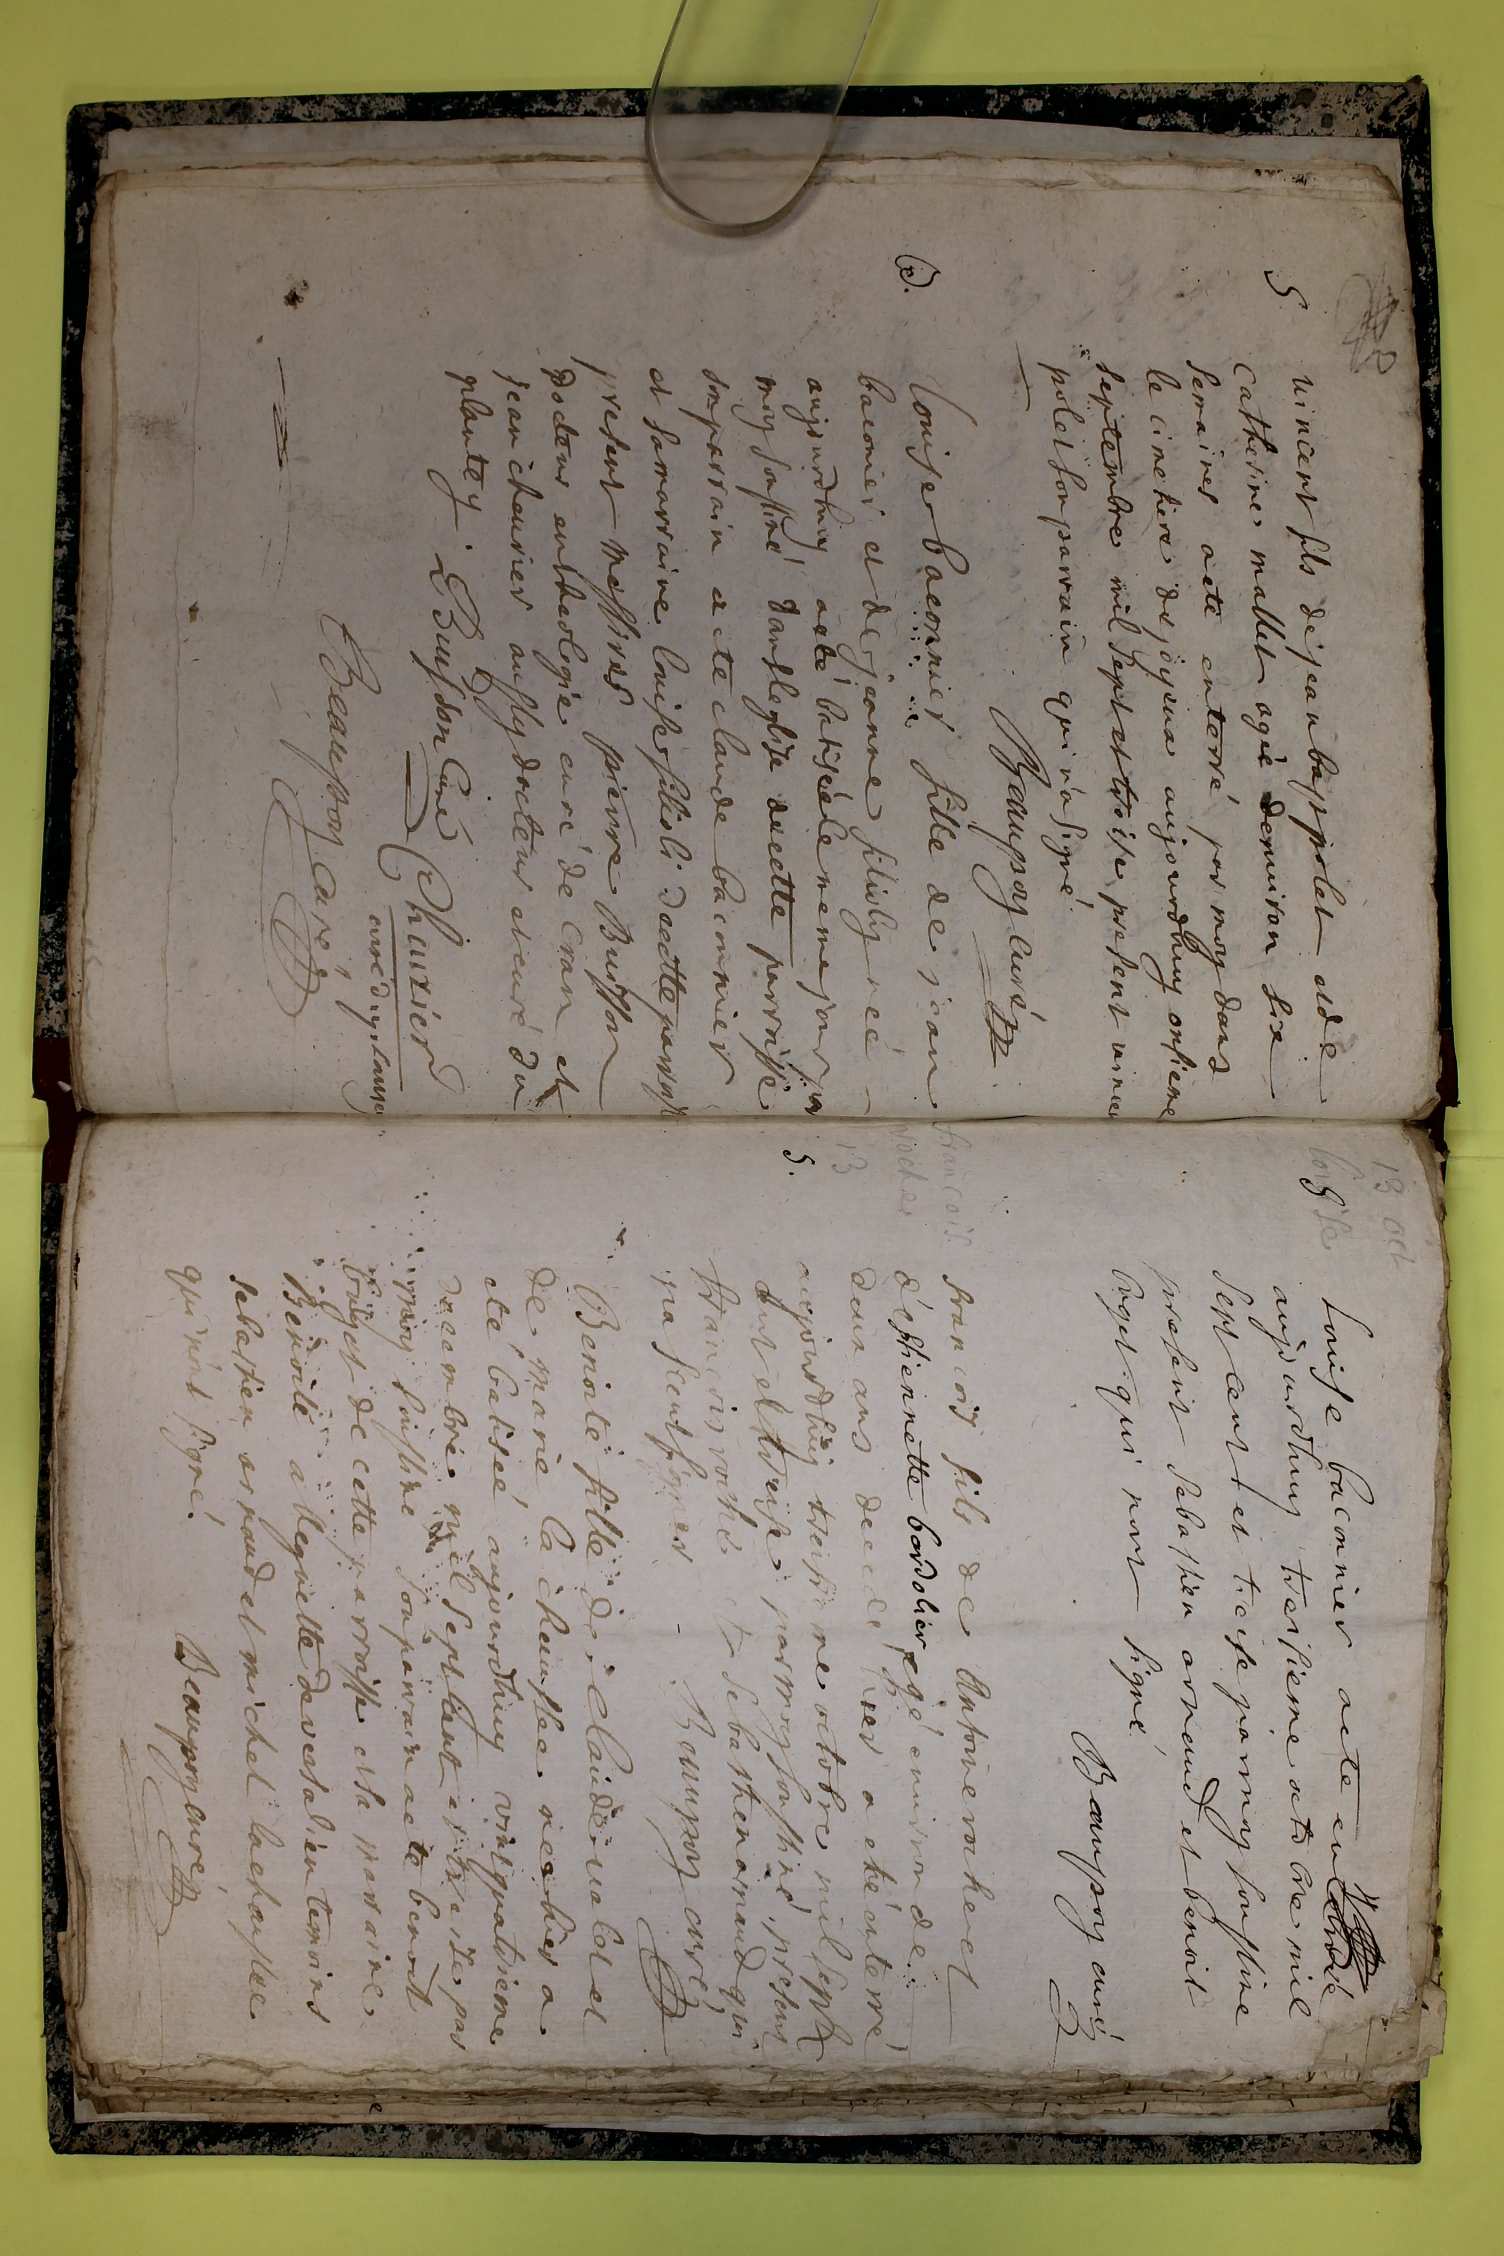 S
vincent fils de jean bap polet et de
catherine mallet agé denuiron six
semaines aeté enterré par moy dans
le cimetiere de joyeux aujourdhuy onsieme
septembre mil sept et treise present vincen
polet son parrain qui na signé.
Beaupoy curé
louise baconnier fille de jean
baconier et de jeanne filioly neé
aujourdhuy aeté batiséele meme jour par
moy soussiné dans leglise decette parroisse
son parrain aeté claude baconnier
et sa marraine louise filioli decette parroiss
present messires pierre Buisson
docteur en theologie curé de cran et
jean cheurier aussy docteur et curé du
plantey
Buisson Curé
Cheurier
curé du plantey
Beaupoy curé
13 oct
loyise
Louise baconnier aeté enterreé
aujourdhuy treisieme octobre mil
sept cent et treise par moy soussine
present sebastien arnaud et benoit
boget qui nont signé
Beaupoy curé
francois
rochet
13
S.
francois fils de Antoine rochet
d'estiennette bardolier agé enuiron de
deux ans decedé hier a eté enterré
aujourdhuy treisieme octobre mil sept
cent et treise par moy soussiné present
francois rochet et sebastien arnaud qui
na sceut signer
Beaupoy curé
Benoite fille de claude uialet et
de marie la cheussee neé hier a
eté batiseé aujourdhuy vintquatrieme
decembre mil sept cent et treise par
moy soussine son parrain aeté benoit
buget de cette parroisse et sa maraine
Benoite
sebastien arnaud et michel lachaussee
qui nont signé.
Beaupoy curé